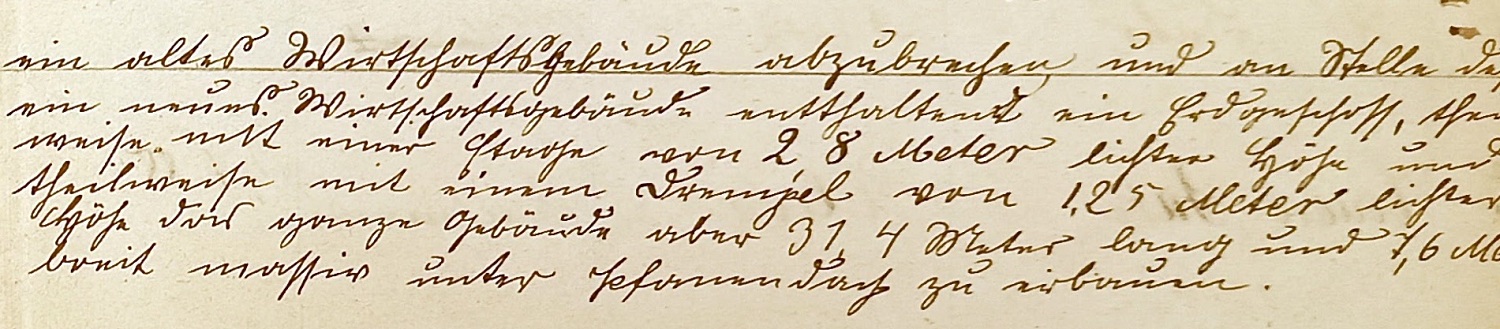 ein altes Wirtschaftsgebäude abzubrechen und an Stelle de
ein neues Wirtschaftsgebäude entthaltend ein Erdgeschoss, thei
weise mit einer Etage von 2,8 Meter lichter Höhe und
theilweise mit einem Drempel von 1,25 Meter lichter
Höhe das ganze Gebäude aber 31,4 Meter lang und 7,6 Me
breit massiv unter Pfanendach zu erbauen.